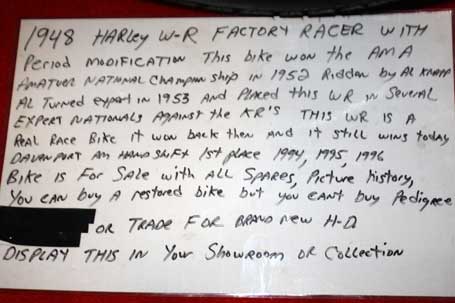 1948 HARLEY W-R FACTORY RACER WITH
Period MODIFICATION This bike won the AMA
AMATUER NATIONAL Champion ship in 1952 Ridden by Al KNAPP
AL Turned expert in 1953 AND Placed this WR in Several
EXPERT NATIONALS Against the KR'S THIS WR IS A
Real Race Bike it won back then and it still wins today
DAVENPORT AM HANDSHIFT 1st place 1994, 1995, 1996
Bike is For Sale with ALL SPARES, Picture history,
You can buy A restored bike but you can't buy Pedigree
OR TRADE FOR BRAND new H-D
DISPLAY THIS IN Your SHOWROOM OR Collection